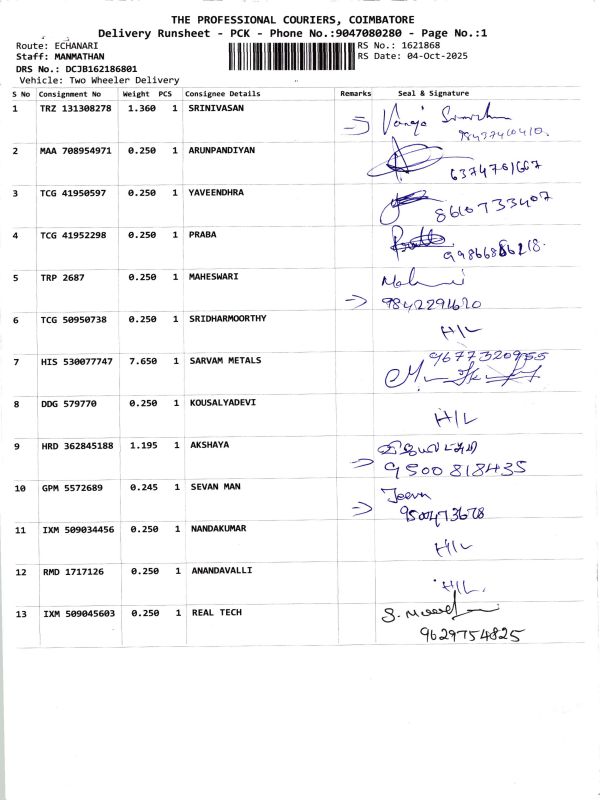 THE PROFESSIONAL COURIERS, COIMBATORE
Delivery Runsheet - PCK - Phone No.:9047080280 - Page No.:1
Route: ECHANARI RS No.: 1621868
Staff: MANMATHAN RS Date: 04-Oct-2025
DRS No.: DCJB162186801
Vehicle: Two Wheeler Delivery
S No Consignment No Weight PCS Consignee Details Remarks Seal & Signature
1 TRZ 131308278 1.360 1 SRINIVASAN
2 MAA 708954971 0.250 1 ARUNPANDIYAN
6374701667
3 TCG 41950597 0.250 1 YAVEENDHRA
8610733407
4 TCG 41952298 0.250 1 PRABA
5 TRP 2687 0.250 1 MAHESWARI
9842291620
6 TCG 50950738 0.250 1 SRIDHARMOORTHY
H/L
7 HIS 530077747 7.650 1 SARVAM METALS
8 DDG 579770 0.250 1 KOUSALYADEVI
H/L
9 HRD 362845188 1.195 1 AKSHAYA
9500818435
10 GPM 5572689 0.245 1 SEVAN MAN
Jeeva
9500473678
11 IXM 509034456 0.250 1 NANDAKUMAR
H/L
12 RMD 1717126 0.250 1 ANANDAVALLI
H/L.
13 IXM 509045603 0.250 1 REAL TECH
9629754825